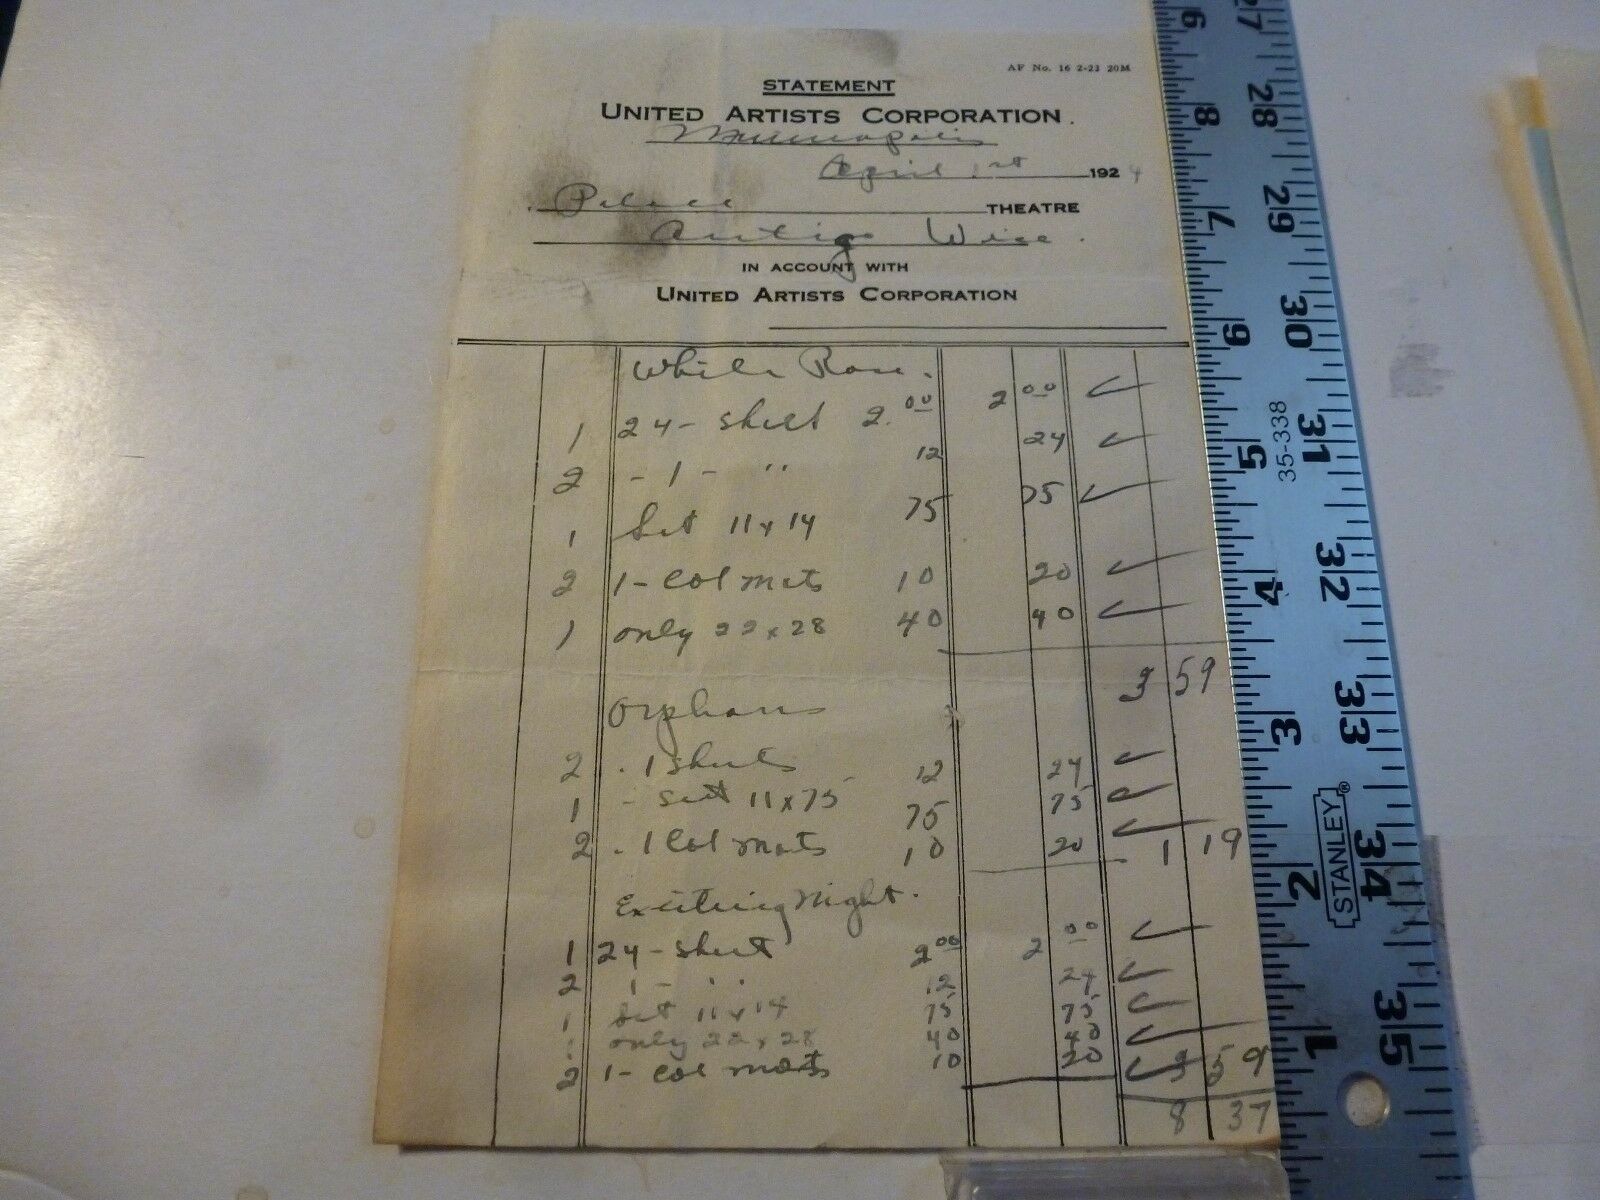 AF No. 16 2-23 20M
STATEMENT
UNITED ARTISTS CORPORATION.
Minneapolis
April 1st 1924
Palace THEATRE
Antigo Wisc.
IN ACCOUNT WITH
UNITED ARTISTS CORPORATION
White Rose.
1 24- sheet 2.00 2 00
2 - 1 - " 12 24
1 Set 11x14 75 75
2 1- Col mats 10 20
1 only 22x28 40 40
3 59
Orphans
2 . 1 Sheets 12 24
1 - set 11x75 75 75
2 . 1 Col mats 10 20 1 19
Exciting Night.
1 24- sheet 2 00 2 00
2 1- " 12 24
1 set 11x14 75 75
1 only 22x28 40 40
2 1- Col mats 10 20 3 59
8 37
6 8 7 6 5 4 3 2 1
27 28 29 30 31 32 33 34 35
35-338
STANLEY®